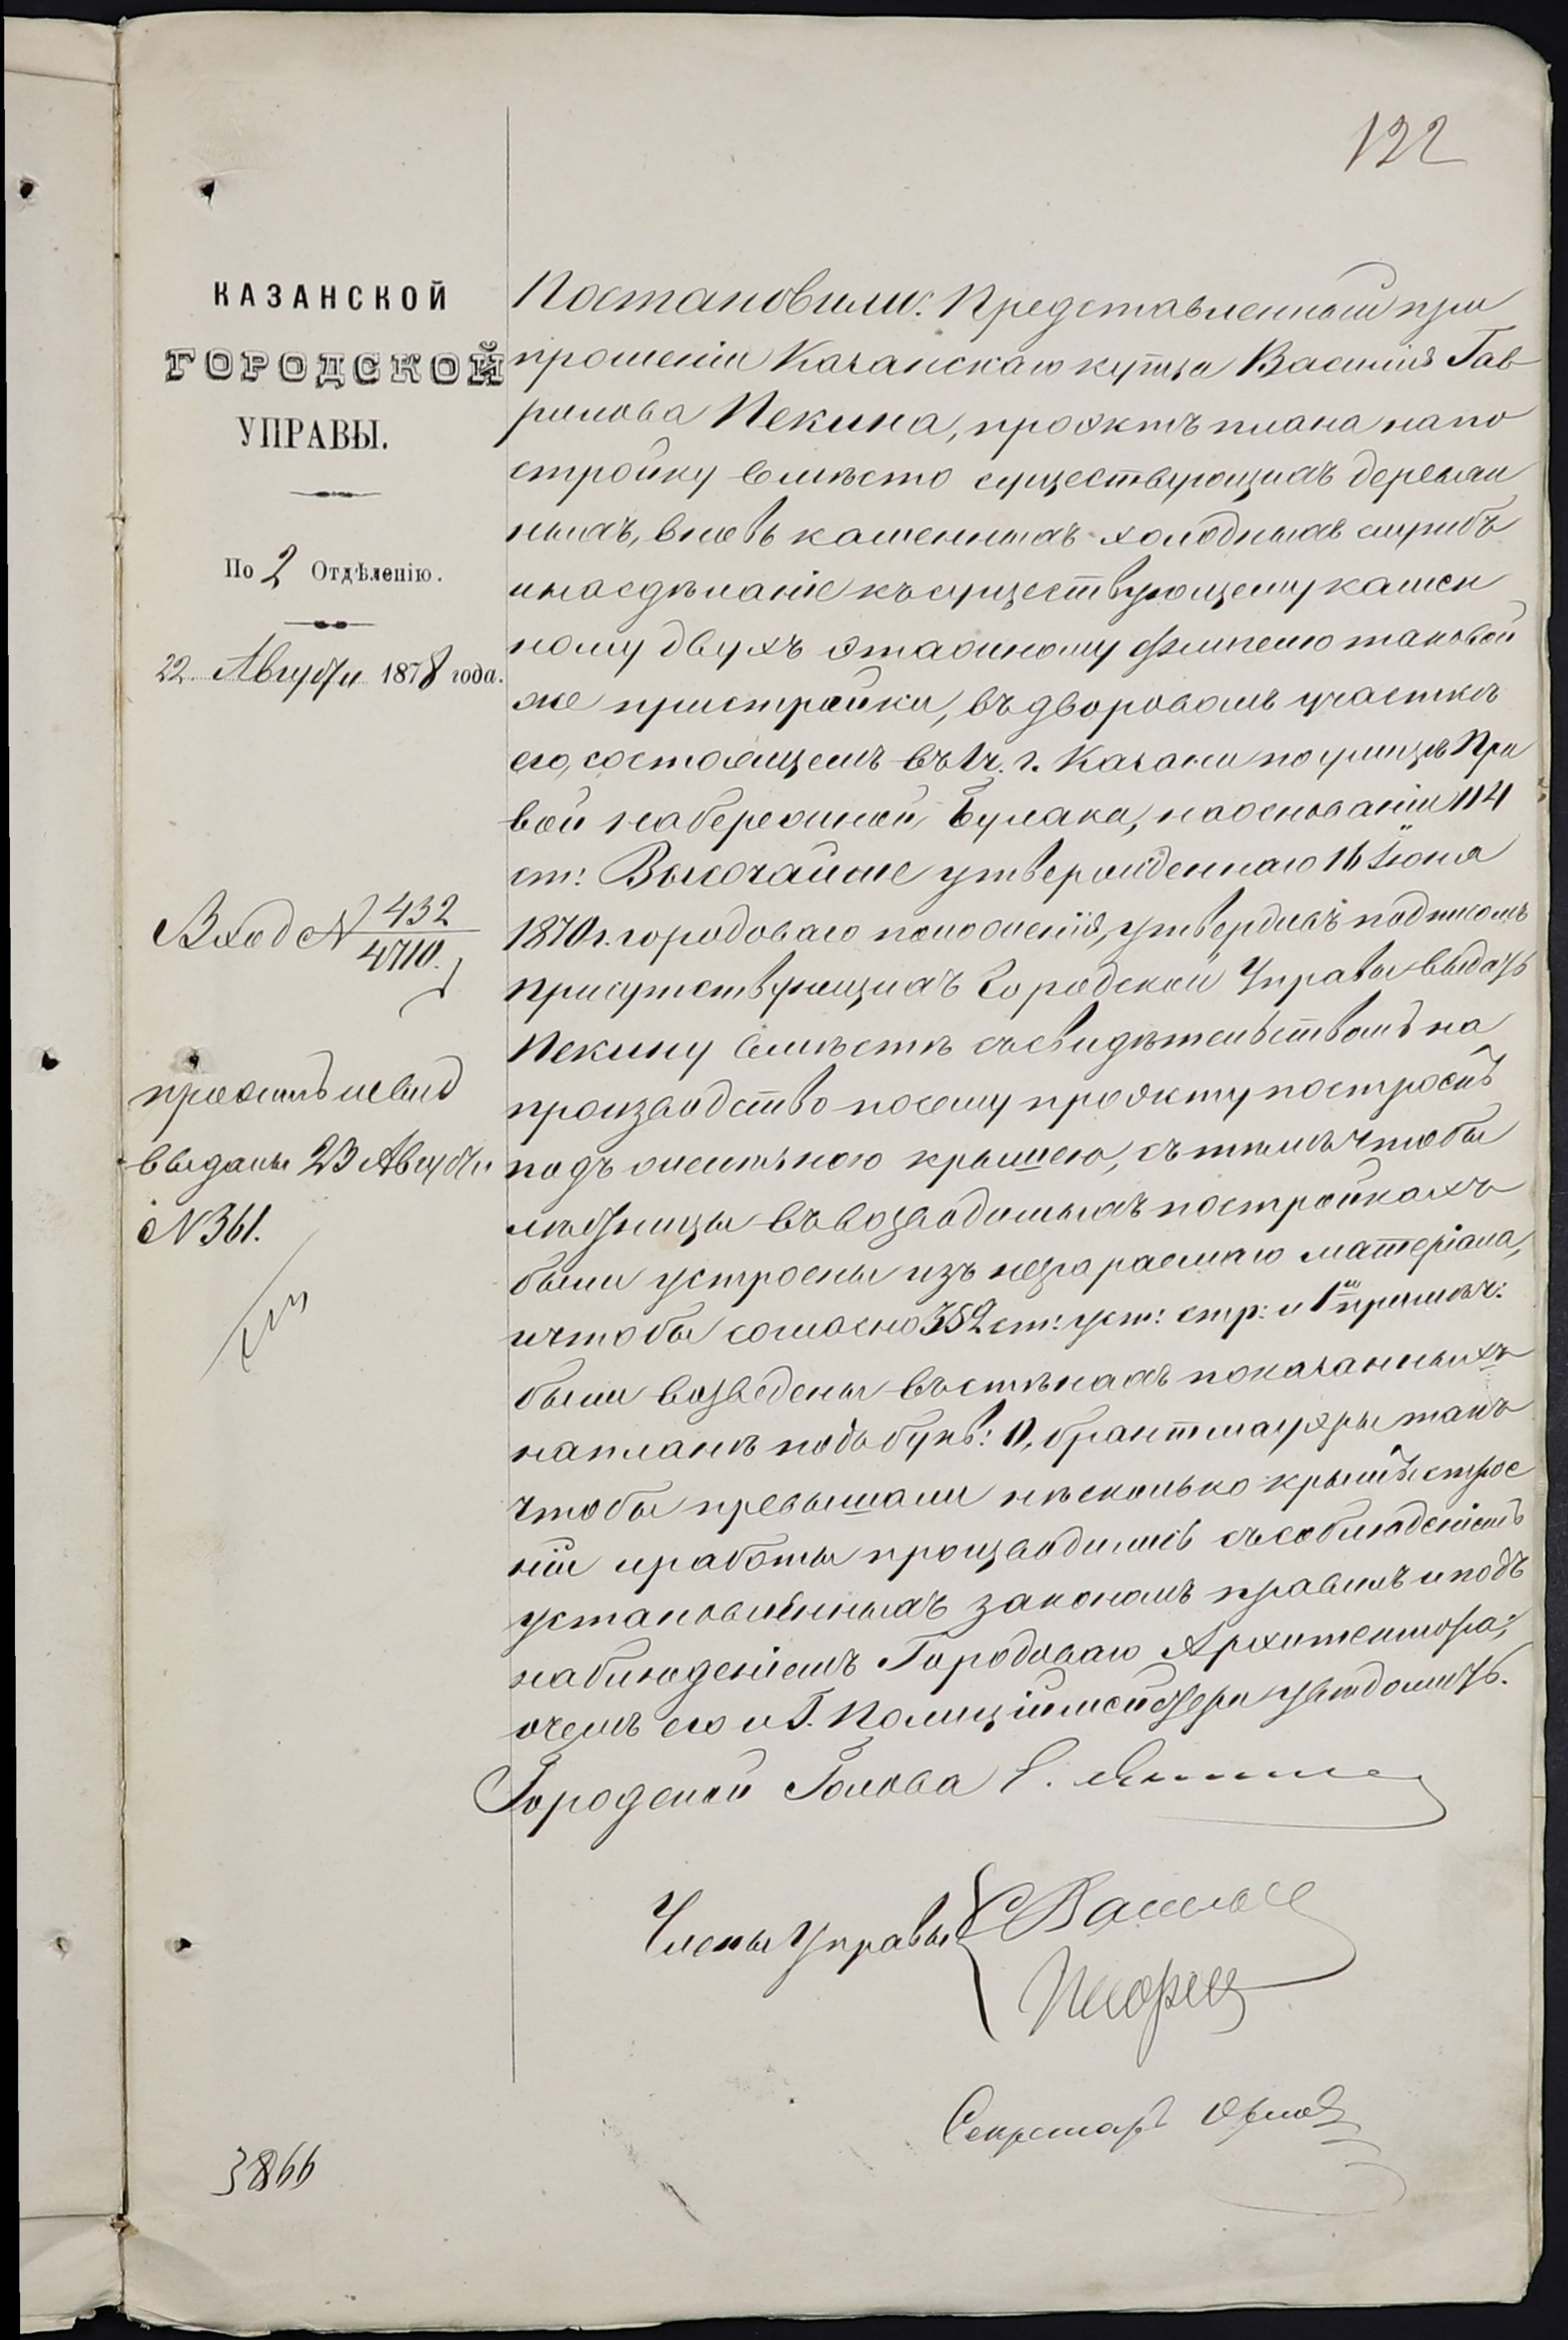 122
КАЗАНСКОЙ
ГОРОДСКОЙ
УПРАВЫ.
По 2 Отдѣленію.
22 Августа 1878 года.
Вход № 432
4710.
проектъ и свид
выданы 23 Августа
№ 361.
Постановили: Представленный при
прошеніи Казанскаго купца Василія Гав
рилова Пекина, проэктъ плана на по
стройку вмѣсто существующихъ деревян
ныхъ, вновь каменныхъ холодныхъ службъ
и на сдѣланіе къ существующему камен
ному двухъ этажному флигелю таковой
же пристройки, въ дворовомъ участкѣ
его, состоящемъ въ 1 ч. г. Казани по улицѣ Пра
вой набережной Булака, на основаніи 114
ст: Высочайше утвержденнаго 16 Іюня
1870 г. городоваго положенія, утвердивъ подписомъ
присутствующихъ Городской Управы выдать
Пекину вмѣстѣ съ свидѣтельствомъ на
производство по сему проэкту построекъ
подъ желѣзною крышею, съ тѣмъ чтобы
лѣстницы въ возводимыхъ постройкахъ
были устроены изъ несгораемаго матеріала,
и чтобы согласно 352 ст: уст: стр: и 1го примѣч:
были возведены въ стѣнахъ показанныхъ
на планѣ подъ букв: О, брантмауэры такъ
чтобы превышали нѣсколько крыши строе
ній и работы производились съ соблюденіемъ
установленныхъ закономъ правилъ и подъ
наблюденіемъ Городоваго Архитектора,
о чемъ его и Г. Полиціймейстера увѣдомить.
Городской Голова
Члены Управы
Секретарь Орлов
3866